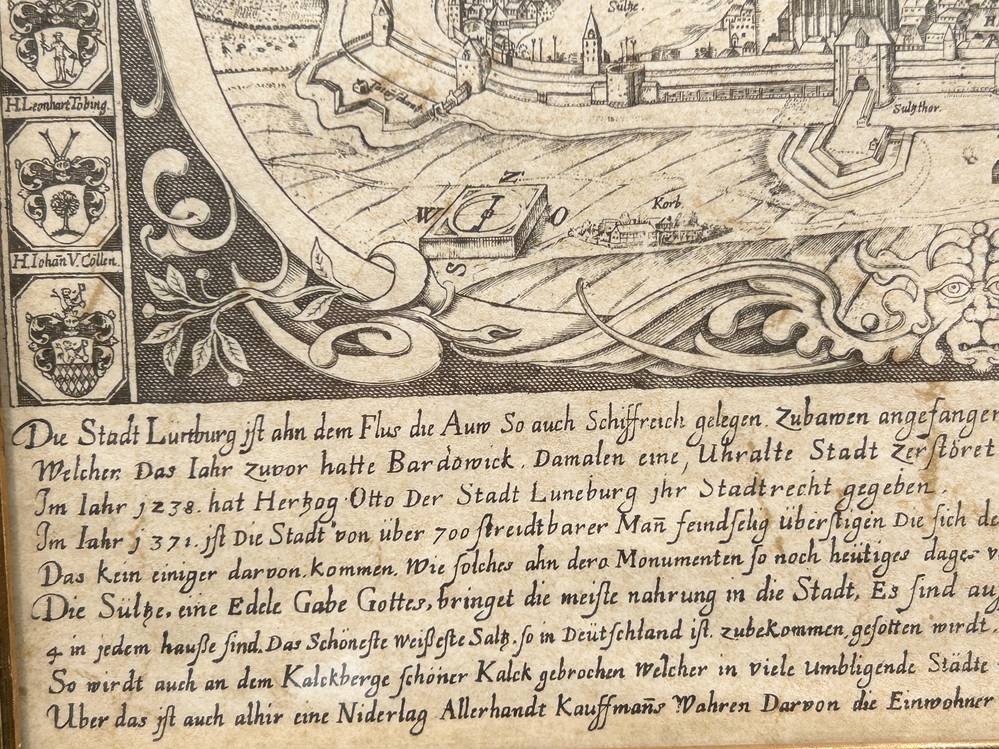 Sültze
H. Leonhart Tobing.
Sultzthor.
Z
W
O
S
Korb
H. Iohañ V. Cöllen.
Die Stadt Lünburg jst ahn dem Flus die Auw So auch Schiffreich gelegen. Zubawen angefangen
Welcher. Das Iahr zuvor hatte Bardowick. Damalen eine, Uhralte Stadt Zerstöret
Im Iahr 1238. hat Hertzog Otto Der Stadt Luneburg jhr Stadtrecht gegeben.
Im Iahr 1371. jst Die Stadt von über 700 streidtbarer Mañ feindselig überstigen Die sich de
Das kein einiger darvon. kommen. Wie solches ahn dero Monumenten so noch heütiges dages v
Die Sültze. eine Edele Gabe Gottes, bringet die meiste nahrung in die Stadt, Es sind au
4 in jedem hauße sind. Das Schöneste weißeste Saltz. so in Deütschland ist. zubekommen gesotten wirdt.
So wirdt auch an dem Kalckberge schöner Kalck gebrochen Welcher in viele umbligende Städte
Uber das jst auch alhir eine Niderlag Allerhandt Kauffmañs Wahren Darvon die Einwohner